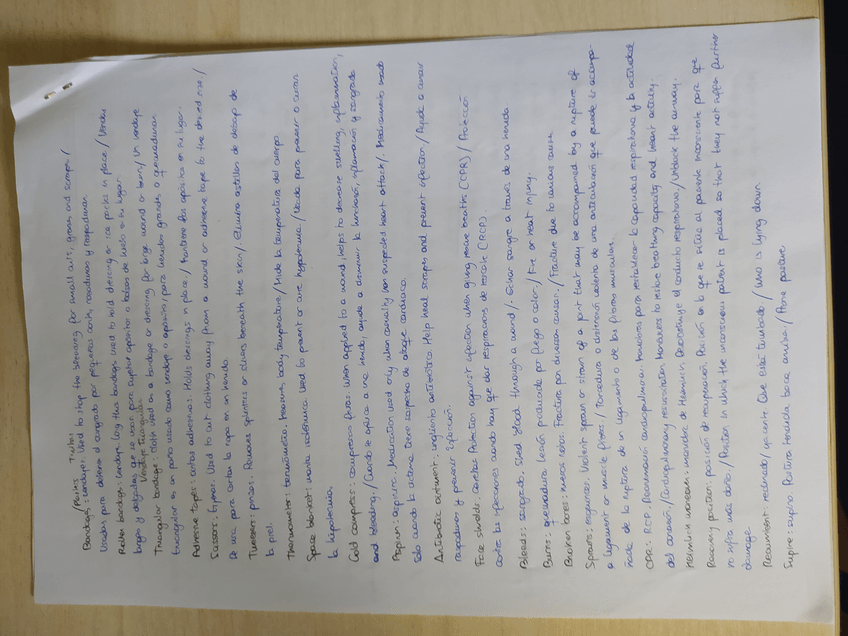 /Parches Tiritas
Bandage: vendajes. Used to stop the bleeding for small cuts, grazes and scrapes /
Usados para detener el sangrado por pequeños cortes, rasaduras y raspaduras.
Roller bandage: vendaje. Long thin bandage used to hold dressing or ice packs in place. / Vendas
largas y delgadas que se usan para sujetar apósito o bolsas de hielo a tu lugar.
Vendaje triangular
Triangular bandage: Cloth used as a bandage or dressing for large wound or burn / Un vendaje
triangular es un paño usado como vendaje o apósito, para heridas grandes o quemaduras.
Adhesive tape: cintas adhesivas. Holds dressings in place / Mantiene los apósitos en su lugar.
Scissors: tijeras. Used to cut clothing away from a wound or adhesive tape to the desired size /
Se usa para cortar la ropa en un herida
Tweezers: pinzas. Removes splinters or slivers beneath the skin / Elimina astillas de debajo de
la piel.
Thermometer: termómetro. Measures body temperature / Mide la temperatura del cuerpo
Space blanket: manta isotérmica. Used to prevent or cure hypothermia / Usada para prevenir o curar
la hipotermia.
Cold compress: compresas frías. When applied to a wound, helps to decrease swelling, inflammation,
and bleeding / Cuando se aplica a una herida, ayuda a disminuir la hinchazón, inflamación y sangrado
Aspirin: aspirina. Medication used only when casualty has suspected heart attack / Medicamento usado
solo cuando la víctima tiene sospecha de ataque cardiaco
Antibiotic ointment: ungüento antibiótico. Help heal scrapes and prevent infection / Ayuda a curar
raspaduras y prevenir infección.
Face shields: caretas. Protection against infection when giving rescue breaths (CPR) / Protección
contra las infecciones cuando hay que dar respiraciones de rescate (RCP).
Bleeds: sangrado. Shed blood through a wound / Echar sangre a través de una herida
Burns: quemadura. Lesión producida por fuego o calor / Fire or heat injury.
Broken bones: huesos rotos. Fractura por diversas causas / Fracture due to various cause
Sprains: esguinces. Violent sprain or strain of a joint that may be accompanied by a rupture of
a ligament or muscle fibers / Torcedura o distensión violenta de una articulación que puede ir acompa-
ñada de la ruptura de un ligamento o de las fibras musculares.
CPR: RCP. Reanimación cardiopulmonar. Maniobras para restablecer la capacidad respiratoria y la actividad
del corazón / Cardiopulmonary resuscitation. Maneuvers to restore breathing capacity and heart activity.
Heimlich maneuver: maniobra de Heimlich. Desobstruye el conducto respiratorio / Unblock the airway.
Recovery position: posición de recuperación. Posición en la que se sitúa al paciente inconsciente para que
no sufra más daño / Position in which the unconscious patient is placed so that they not suffer further
damage
Recumbent: reclinado/ yacente. Que está tumbado / Who is lying down
Supine: supino. Postura tendida boca arriba / Prone position